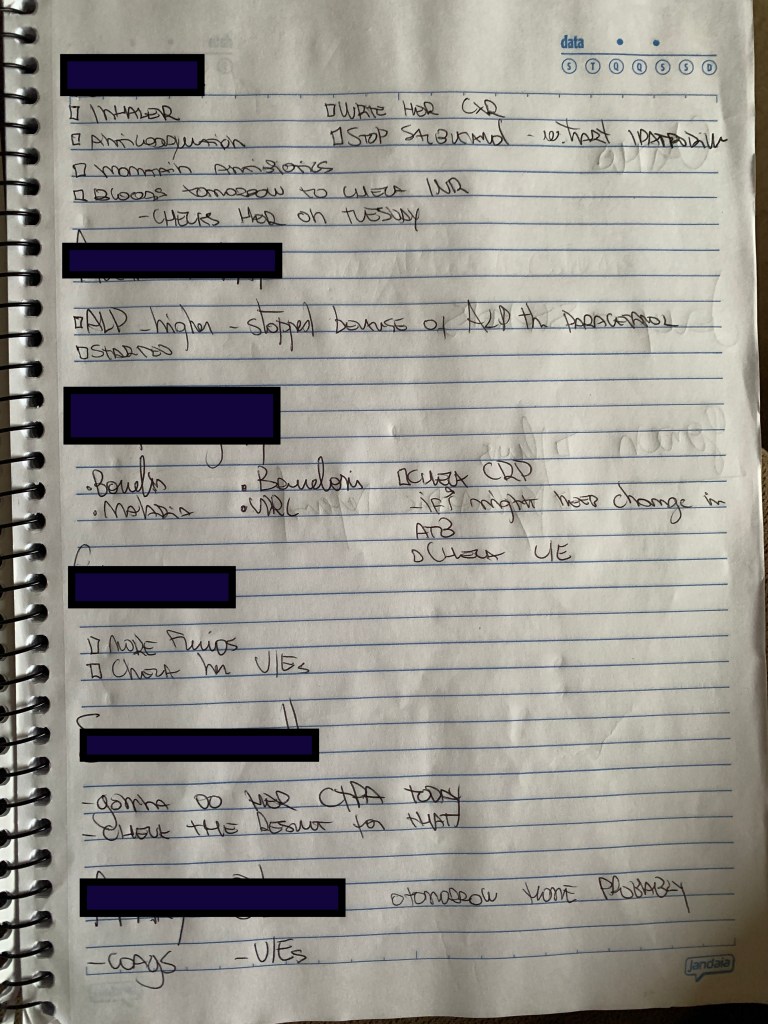 data
S T Q Q S S D
INHALER
WRITE HER CXR
Anticoagulation
STOP SALBUTAMOL - start IPATROPIUM
Maintain Antibiotics
Bloods tomorrow to check INR
- CHECKS HER on TUESDAY
ALP - higher - stopped because of ALP the PARACETAMOL
STARTED
CHECK CRP
. MALARIA
. VDRL
- if ↑ might need change in
ATB
CHECK UE
MORE Fluids
Check her U/Es
- gonna DO HER CTPA TODAY
- CHECK THE RESULT for THAT
tomorrow HOME PROBABLY
- COAGS
- U/Es
jandaia